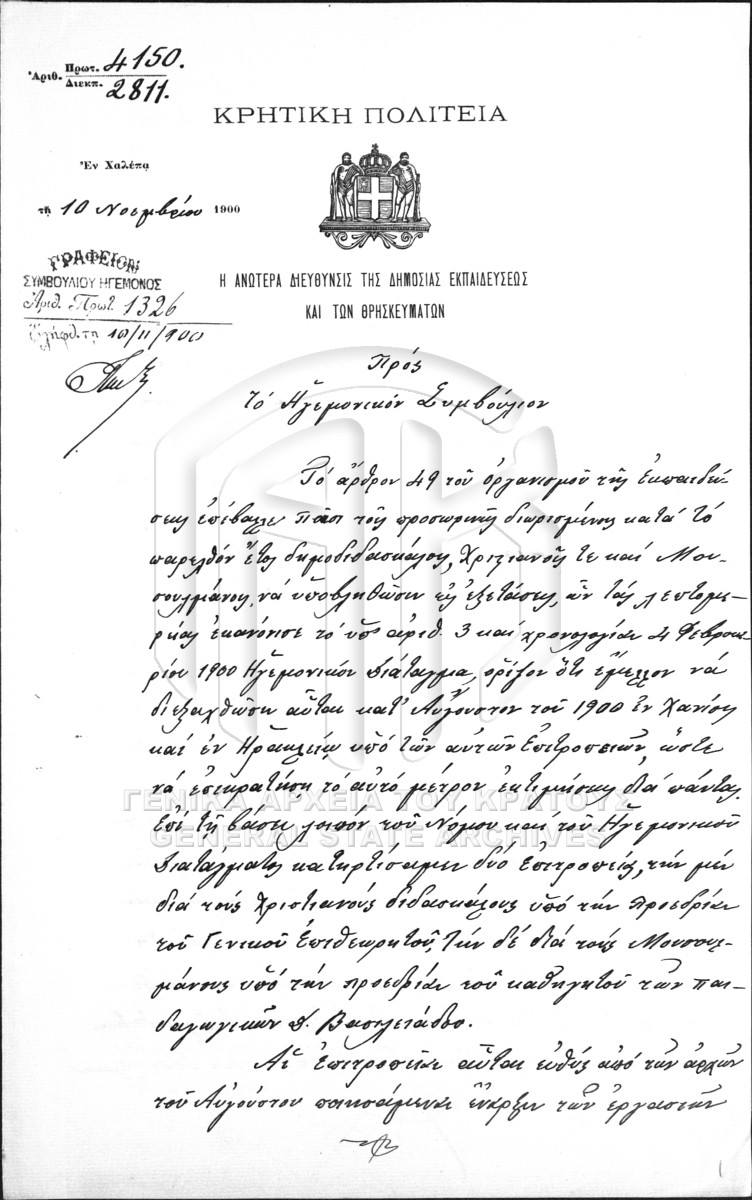 Ἀριθ. Πρωτ. 4150.
Διεκπ. 2811.
ΚΡΗΤΙΚΗ ΠΟΛΙΤΕΙΑ
Ἐν Χαλέπᾳ
τῇ 10 Νοεμβρίου 1900
ΓΡΑΦΕΙΟΝ
ΣΥΜΒΟΥΛΙΟΥ ΗΓΕΜΟΝΟΣ
Ἀριθ. Πρωτ. 1326
Ἐλήφθη τῇ 10/11/900
Η ΑΝΩΤΕΡΑ ΔΙΕΥΘΥΝΣΙΣ ΤΗΣ ΔΗΜΟΣΙΑΣ ΕΚΠΑΙΔΕΥΣΕΩΣ
ΚΑΙ ΤΩΝ ΘΡΗΣΚΕΥΜΑΤΩΝ
Πρός
τό Ἡγεμονικόν Συμβούλιον
Τό ἄρθρον 49 τοῦ ὀργανισμοῦ τῆς ἐκπαιδεύ-
σεως ἐπέβαλλε πᾶσι τοῖς προσωρινῶς διωρισμένοις κατά τό
παρελθόν ἔτος δημοδιδασκάλοις, Χριστιανοῖς τε καί Μου-
σουλμάνοις, νά ὑποβληθῶσιν εἰς ἐξετάσεις, ὧν τάς λεπτομε-
ρείας ἐκανόνισε τό ὑπ' ἀριθ. 3 καί χρονολογίαν 4 Φεβρουα-
ρίου 1900 Ἡγεμονικόν Διάταγμα, ὁρίζον ὅτι ἔμελλον νά
διεξαχθῶσιν αὗται κατ' Αὔγουστον τοῦ 1900 ἐν Χανίοις
καί ἐν Ἡρακλείῳ ὑπό τῶν αὐτῶν Ἐπιτροπειῶν, ὥστε
νά ἐπικρατήσῃ τό αὐτό μέτρον ἐκτιμήσεως διά πάντας.
Ἐπί τῇ βάσει λοιπόν τοῦ Νόμου καί τοῦ Ἡγεμονικοῦ
Διατάγματος κατηρτίσαμεν δύο Ἐπιτροπείας, τήν μέν
διά τούς Χριστιανούς διδασκάλους ὑπό τήν προεδρίαν
τοῦ Γενικοῦ Ἐπιθεωρητοῦ, τήν δέ διά τούς Μουσουλ-
μάνους ὑπό τήν προεδρίαν τοῦ καθηγητοῦ τῶν παι-
δαγωγικῶν Δ. Βασιλειάδου.
Αἱ Ἐπιτροπεῖαι αὗται εὐθύς ἀπό τῶν ἀρχῶν
τοῦ Αὐγούστου ποιησάμεναι ἔναρξιν τῶν ἐργασιῶν
ΓΕΝΙΚΑ ΑΡΧΕΙΑ ΤΟΥ ΚΡΑΤΟΥΣ
GENERAL STATE ARCHIVES
1